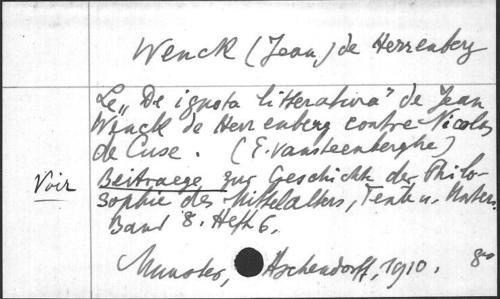 Wenck (Jean) de Herrenberg
Le „De ignota litteratura" de Jean
Wenck de Herrenberg contre Nicolas
de Cuse. (E. Vansteenberghe)
Voir Beitraege zur Geschichte der Philo-
sophie des Mittelalters, Texte u. Unters.
Band 8. Heft 6.
Munster, Aschendorff, 1910. 8°